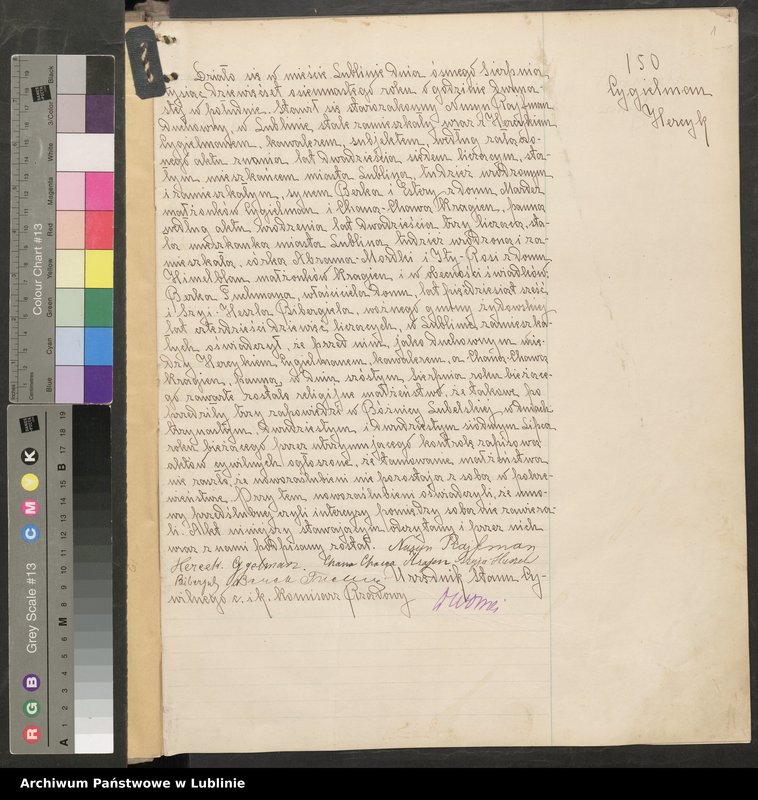 1
150
Cygielman
Hercyk
Działo się w mieście Lublinie dnia ósmego sierpnia
tysiąc dziewięćset osiemnastego roku o godzinie dwuna-
stej w południe. Stawił się starozakonny Nusyn Rajfman
duchowny, w Lublinie stale zamieszkały wraz z Hercykiem
Cygielmanem, kawalerem, subjektem, według złożo-
nego aktu znania lat dwadzieścia siedem liczącym, sta-
łym mieszkańcem miasta Lublina, tudzież urodzonym
i zamieszkałym, synem Berka i Estery z domu Mader
małżonków Cygielman i Chana-Chawa Kragien, panną
według aktu urodzenia lat dwadzieścia trzy liczącą, sta-
łą mieszkanką miasta Lublina, tudzież urodzoną i za-
mieszkałą, córką Abrama-Mordki i Ity-Rosi z domu
Himelblau małżonków Kragien, i w obecności świadków:
Berka Fuchmana, właściciela domu, lat pięćdziesiąt sześć
i Szyi-Herszla Bibergiela, woźnego gminy żydowskiej
lat czterdzieści dziewięć liczących, w Lublinie zamieszka-
łych oświadczył, że przed nim, jako duchownym mię-
dzy Hercykiem Cygielmanem, kawalerem, a Chaną-Chawą
Kragien, panną, w dniu szóstym sierpnia roku bieżące-
go zawarte zostało religijne małżeństwo, że takowe po-
przedziły trzy zapowiedzi w Bóżnicy Lubelskiej w dniach
trzynastym, dwudziestym i dwudziestym siódmym lipca
roku bieżącego przez utrzymującego kontrolę zapisową
aktów cywilnych ogłoszone, że tamowanie małżeństwa
nie zaszło, że nowozaślubieni nie pozostają z sobą w pokre-
wieństwie. Przy tem nowozaślubieni oświadczyli, że umo-
wy przedślubnej czyli intercyzy pomiędzy sobą nie zawiera-
li. Akt niniejszy stawającym odczytany i przez nich
wraz z nami podpisany został. Nusyn Rajfman
Hercek Cygelman. Chana Chawa Kragen Szyja Hersch
Bibergal Urzędnik Stanu Cy-
wilnego c. i k. Komisarz Rządowy
Colour Chart #13
Blue
Cyan
Green
Yellow
Red
Magenta
White
3/Color
Black
Centimetres
Grey Scale #13
R G B
C M Y K
A 1 2 3 4 5 6 M 8 9 10 11 12 13 14 15 B 17 18 19
Archiwum Państwowe w Lublinie